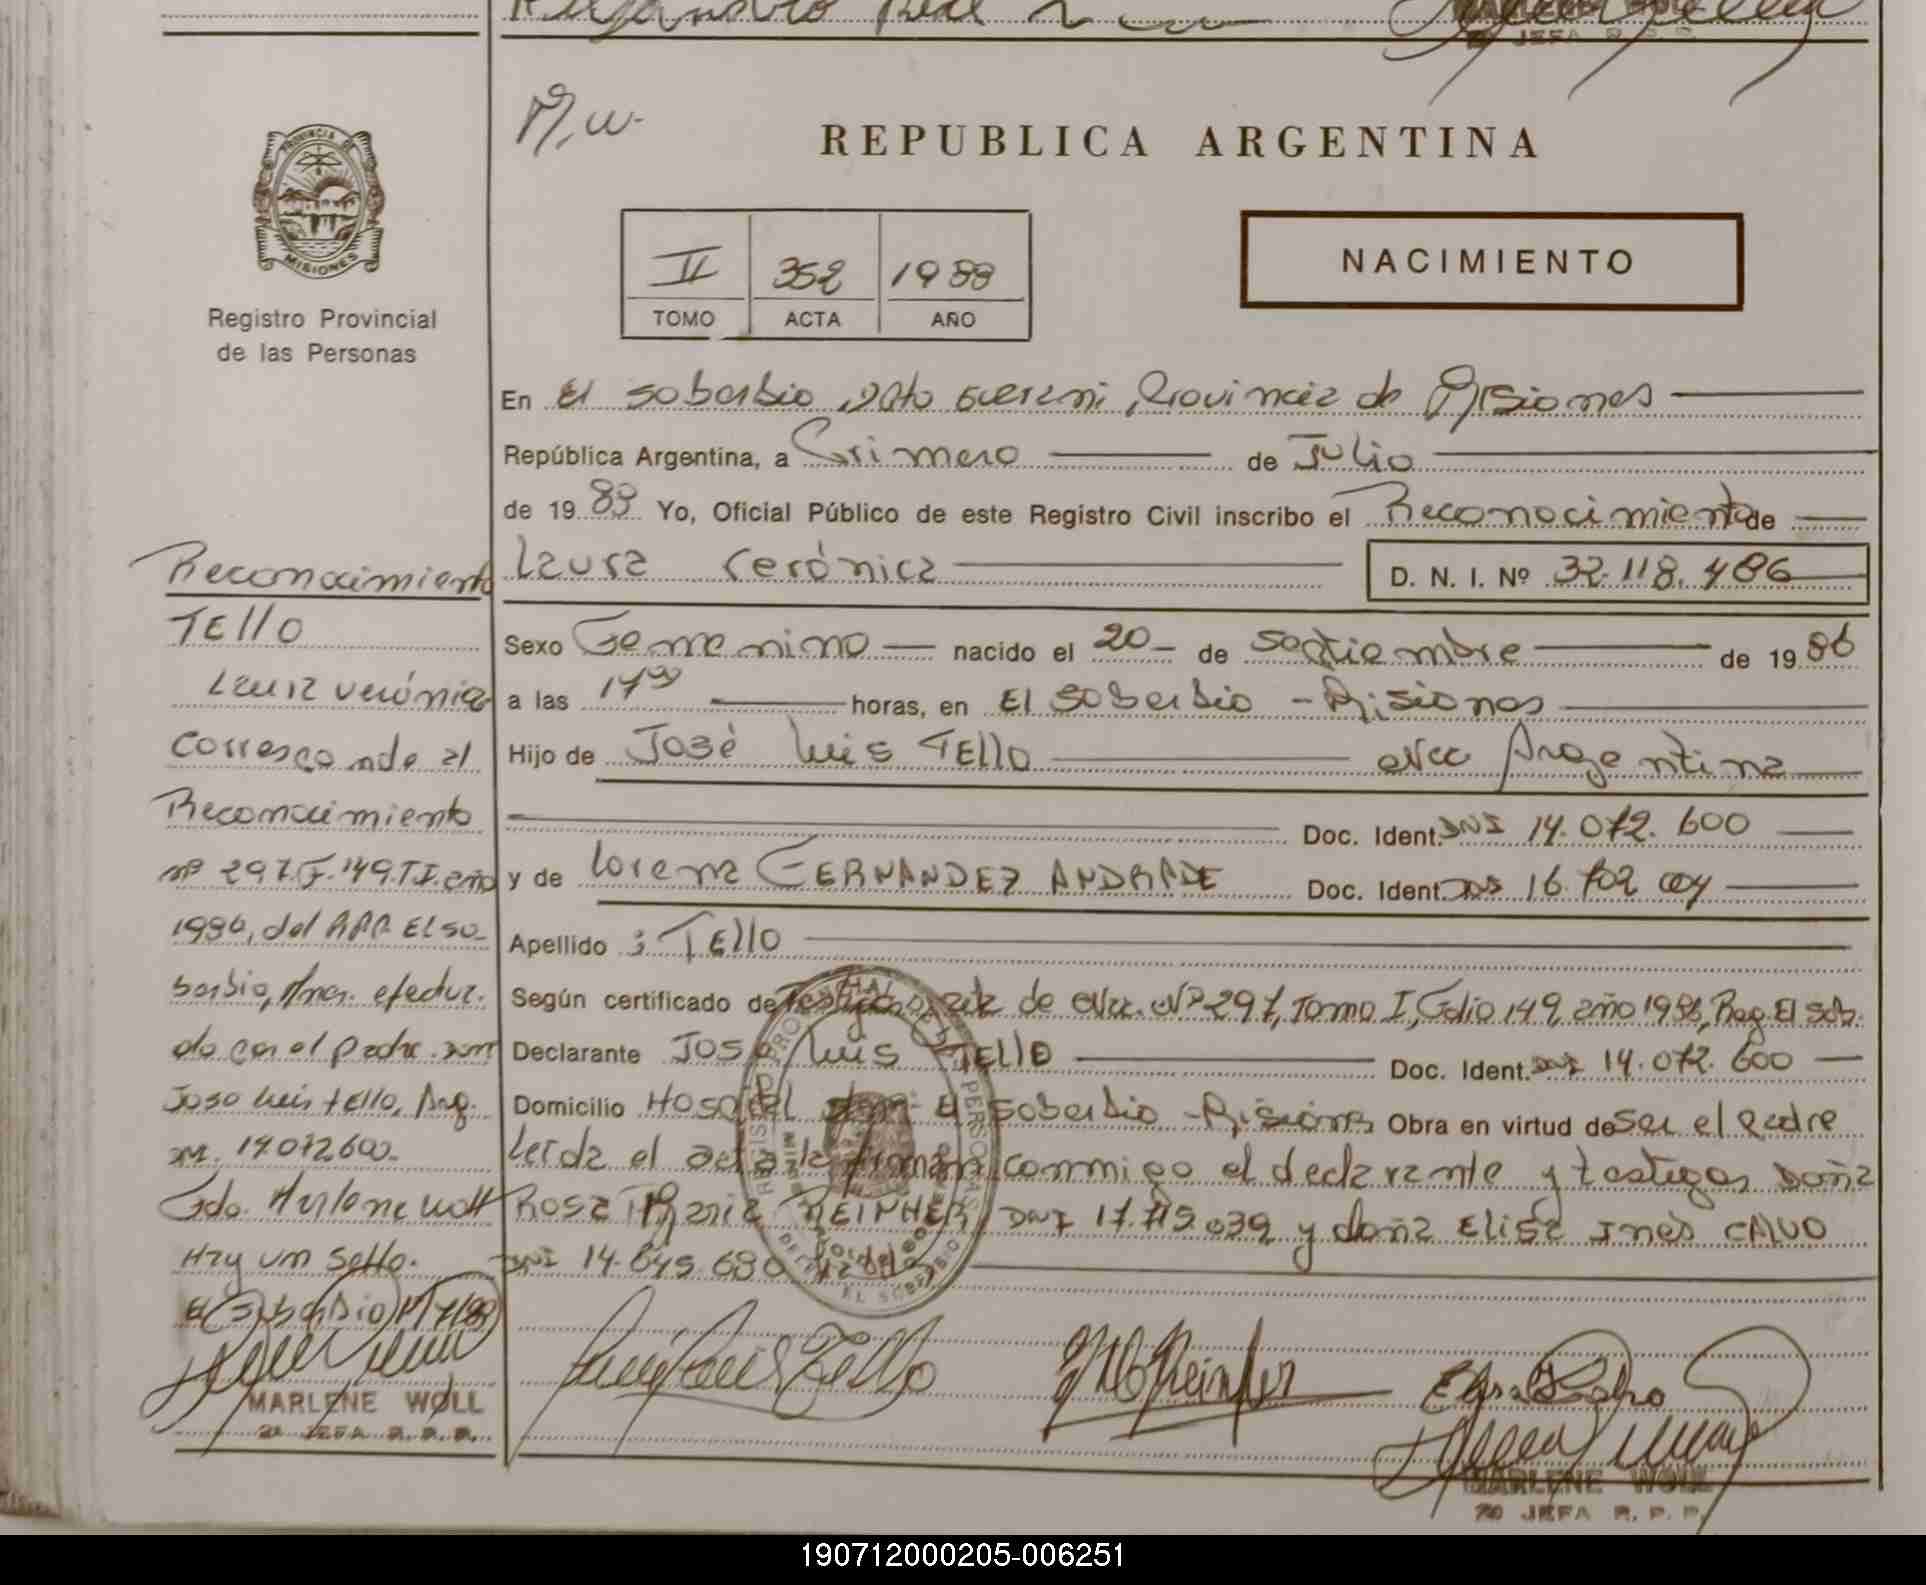 M.w.
REPUBLICA ARGENTINA
PROVINCIA DE
MISIONES
Registro Provincial
de las Personas
II 352 1988
TOMO ACTA AÑO
NACIMIENTO
En El Soberbio, Dpto Guaraní, Provincia de Misiones
República Argentina, a Primero de Julio
de 1988 Yo, Oficial Público de este Registro Civil inscribo el Reconocimiento de
Laura Verónica D. N. I. Nº 32.118.486
Sexo Femenino nacido el 20 de Septiembre de 1986
a las horas, en El Soberbio - Misiones
Hijo de José Luis TEllO Nac Argentina
Doc. Ident. DNI 14.072.600
y de Lorena FERNANDEZ ANDRADE Doc. Ident. DNI 16.702.
Apellido : TEllO
Según certificado de de Nac. Nº 297, Tomo I, Folio 149, año 1986, Reg. El Sob.
Declarante José Luis TEllO Doc. Ident. DNI 14.072.600
Domicilio Hospital El Soberbio - Misiones Obra en virtud de ser el padre
Leída el acta la firman conmigo el declarante y testigos Doña
Rosa María REINHER, DNI 17. .039 y doña Elisa Inés CALVO
DNI 14.645.680
Reconocimiento
TEllO
Laura Verónica
Corresponde al
Reconocimiento
nº 297.F.149.T I. año
1986, del RPP. El So-
berbio, Mnes. efectua-
do por el padre. Don
José Luis Tello, Arg.
DNI. 14.072.600.
Fdo. Marlene Woll
Hay un sello.
El Soberbio,
MARLENE WOLL
2a JEFA R. P. P.
José Luis Tello
REGISTRO PROVINCIAL DE LAS PERSONAS
EL SOBERBIO
MARLENE WOLL
2a JEFA R. P. P.
190712000205-006251